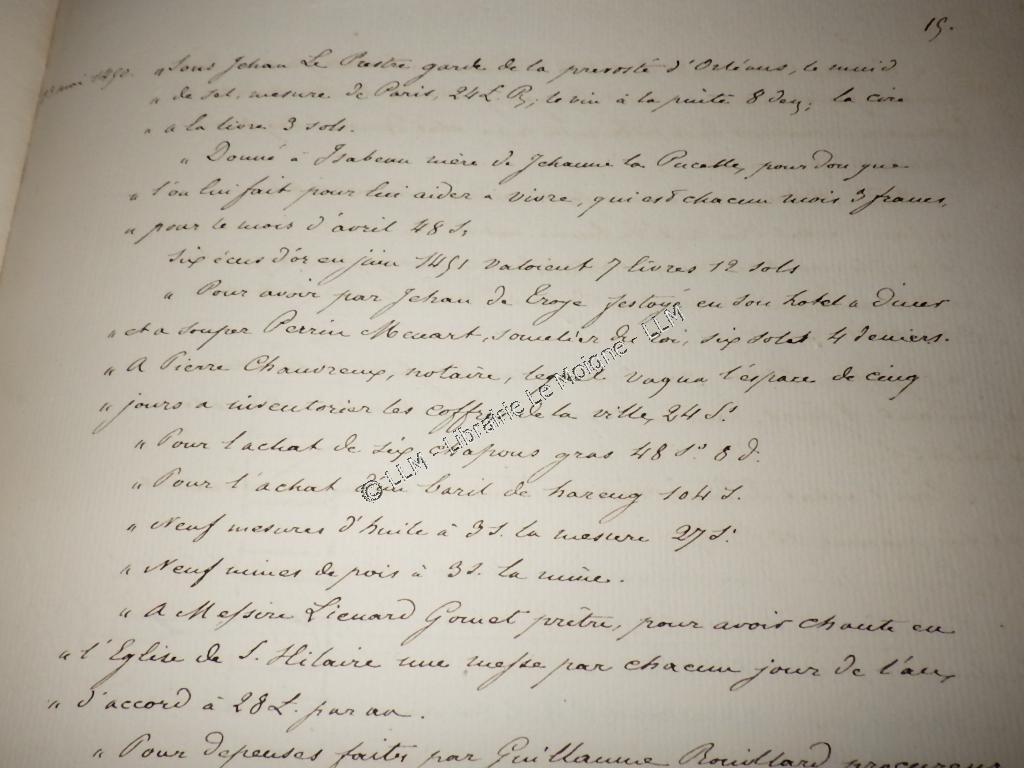 15.
mai 1450.
"Sous Jehan Le Prestre garde de la prevosté d'Orléans, le muid
" de sel, mesure de Paris, 24 L. P.; le vin à la pinte 8 den; la cire
" a la livre 3 sols.
" Donné à Isabeau mère de Jehanne la Pucelle, pour don que
" l'on lui fait pour lui aider a vivre, qui est chacun mois 3 francs,
" pour le mois d'avril 48 S.
six écus d'or en juin 1451 valoient 7 livres 12 sols
" Pour avoir par Jehan de Troye festoyé en son hotel a diner
" et a souper Perrin Menart, somelier du Roi, six sols 4 deniers.
" A Pierre Chauvreux, notaire, lequel vaqua l'espace de cinq
" jours a inventorier les coffres de la ville, 24 S.
" Pour l'achat de six chapons gras 48 S. 8 d.
" Pour l'achat d'un baril de hareng 104 S.
" Neuf mesures d'huile à 3 S. la mesure 27 S.
" Neuf mines de pois à 3 S. la mine.
" A Messire Lienard Gomet prêtre, pour avoir chanté en
" l'Eglise de S. Hilaire une messe par chacun jour de l'an,
" d'accord à 28 L. par an.
" Pour depenses faites par Guillaume Rouillard procureur
© LLM - Librairie Le Moigne - LLM